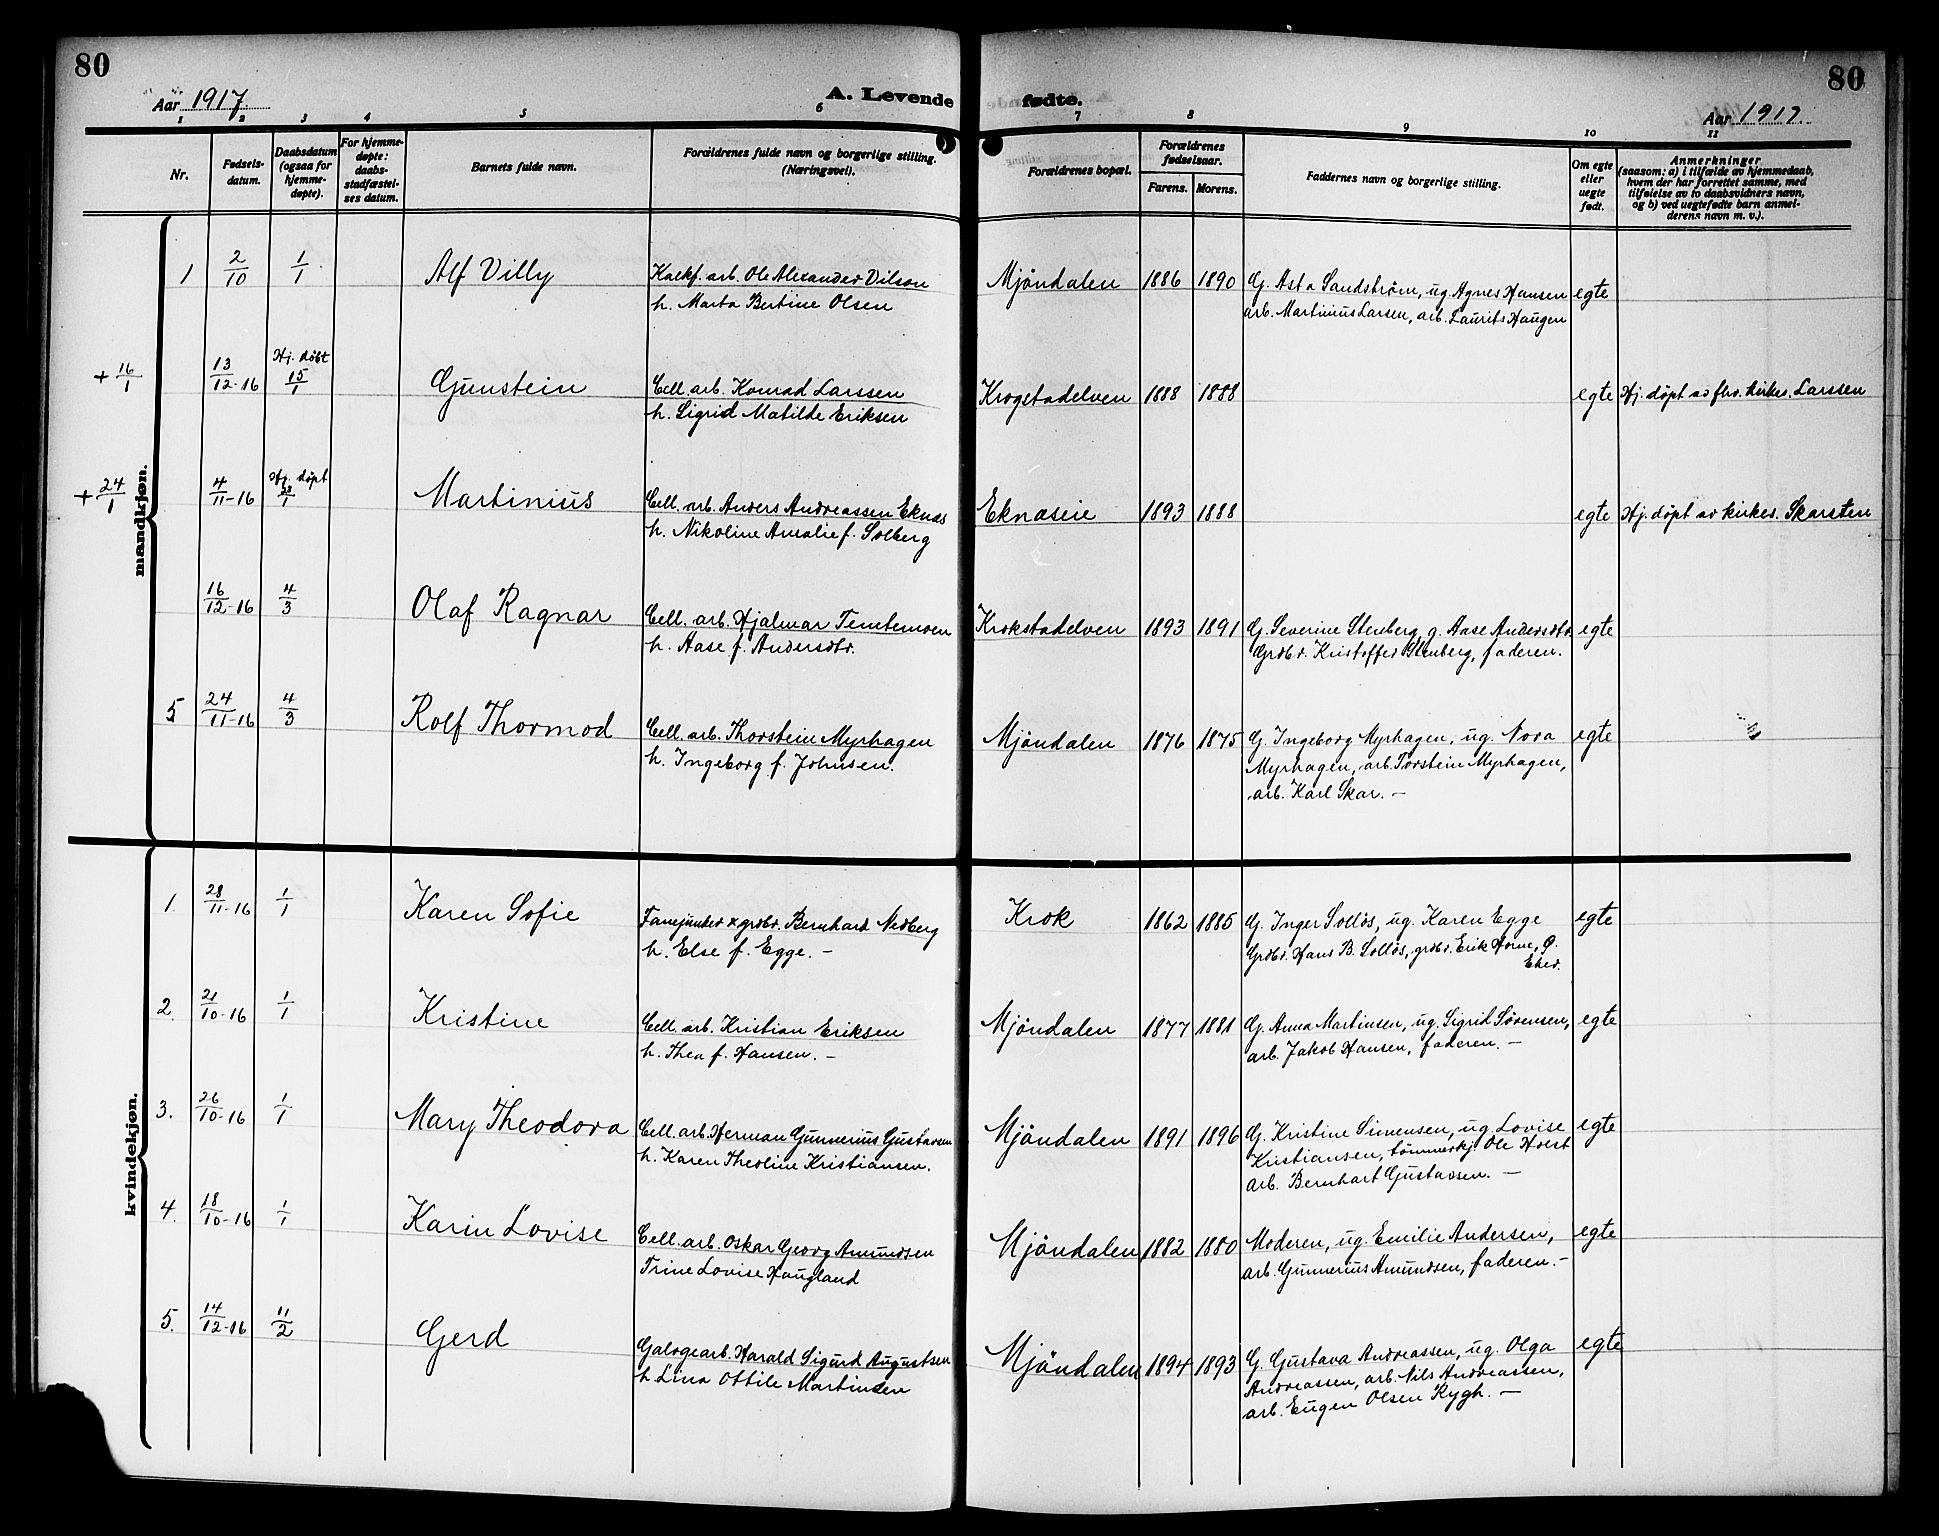 80
Aar 1917.
A. Levende
1 2 3 4 5 6
Nr.
Fødsels-
datum.
Daabsdatum
(ogsaa for
hjemme-
døpte).
For hjemme-
døpte:
daabs-
stadfæstel-
ses datum.
Barnets fulde navn.
Forældrenes fulde navn og borgerlige stilling.
(Næringsvei).
mandkjøn.
1 2/10 1/1 Alf Villy
Kalkf. arb. Ole Alexander Vilson
h. Marta Bertine Olsen
+ 16/1 13/12-16 Hj. døbt 15/1 Gunstein
Cell. arb. Konrad Larssen
h. Sigrid Matilde Eriksen
+ 24/1 4/11-16 Hj. døpt 23/1 Martinius
Cell. arb. Anders Andreassen Eknæs
h. Nikoline Amalie f. Solberg
16/12-16 4/3 Olaf Ragnar
Cell. arb. Hjalmar Temtemoen
h. Aase f. Andersdtr.
5 24/11-16 4/3 Rolf Thormod
Cell. arb. Thorstein Myrhagen
h. Ingeborg f. Johnsen.
kvindekjøn.
1. 28/11-16 1/1 Karen Sofie
Fanejunker & grdbr. Bernhard Nedberg
h. Else f. Egge. —
2. 21/10-16 1/1 Kristine
Cell. arb. Kristian Eriksen
h. Thea f. Hansen. —
3. 26/10-16 1/1 Mary Theodora
Cell. arb. Herman Gunnerius Gustavsen
h. Karen Theoline Kristiansen.
4. 18/10-16 1/1 Karin Lovise
Cell. arb. Oskar Georg Amundsen
Trine Lovise Haugland
5. 14/12-16 11/2 Gerd
Galogearb. Harald Sigurd Augustsen
h Lina Ottile Martinsen
80
fødte.
Aar 1917.
7 8 9 10 11
Forældrenes bopæl.
Forældrenes
fødselsaar.
Farens. Morens.
Faddernes navn og borgerlige stilling.
Om egte
eller
uegte
født.
Anmerkninger
(saasom: a) i tilfælde av hjemmedaab,
hvem der har forrettet samme, med
tilføielse av to daabsvidners navn,
og b) ved uegtefødte barn anmel-
derens navn m. v.).
Mjöndalen 1886 1890 G. Asta Sandstrøm, ug. Agnes Hansen egte
arb. Martinius Larsen, arb. Laurits Haugen
Krogstadelven 1888 1888 egte Hj. døpt av fhv. kirkes. Larssen
Eknæseie 1893 1888 egte Hj. døpt av kirkes. Skarsten
Krokstadelven 1893 1891 G. Severine Stenberg, g. Aase Andersdtr. egte
Grdbr. Kristoffer Stenberg, faderen.
Mjöndalen 1876 1875 G. Ingeborg Myrhagen, ug. Nora egte
Myrhagen, arb. Torstein Myrhagen,
arb. Karl Skar. —
Krok 1862 1885 G. Inger Solløs, ug. Karen Egge egte
Grdbr. Hans B. Solløs, grdbr. Erik Horne, Ø.
Eker.
Mjöndalen 1877 1881 G. Anna Martinsen, ug. Sigrid Sørensen, egte
arb. Jakob Hansen, faderen. —
Mjöndalen 1891 1896 G. Kristine Simensen, ug. Lovise egte
Kristiansen, tömmerkj. Ole Holst
arb. Bernhart Gustavsen. —
Mjöndalen 1882 1880 Moderen, ug. Emilie Andersen, egte
arb. Gunnerius Amundsen, faderen. —
Mjöndalen 1894 1893 G. Gustava Andreassen, ug. Olga egte
Andreassen, arb. Nils Andreassen,
arb. Eugen Olsen Rygh. —